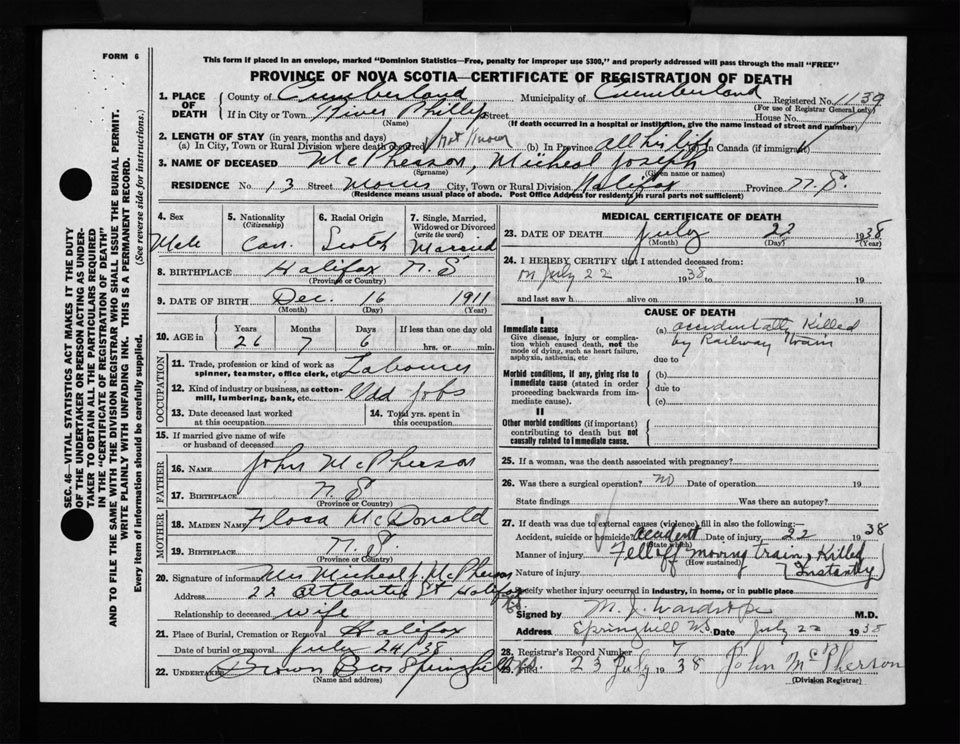 FORM 6
This form if placed in an envelope, marked "Dominion Statistics—Free, penalty for improper use $300," and properly addressed will pass through the mail "FREE"
PROVINCE OF NOVA SCOTIA—CERTIFICATE OF REGISTRATION OF DEATH
1. PLACE OF DEATH County of Cumberland Municipality of Cumberland Registered No. 1139
(For use of Registrar General only)
If in City or Town River Philip Street House No.
(Name) (If death occurred in a hospital or institution, give the name instead of street and number)
2. LENGTH OF STAY (in years, months and days)
(a) In City, Town or Rural Division where death occurred Not Known (b) In Province All his life In Canada (if immigrant)
3. NAME OF DECEASED McPherson, Micheal Joseph
(Surname) (Given name or names)
RESIDENCE No. 13 Street Morris City, Town or Rural Division Halifax Province N.S.
(Residence means usual place of abode. Post Office Address for residents in rural parts not sufficient)
4. Sex Male
5. Nationality (Citizenship) Can.
6. Racial Origin Scotch
7. Single, Married, Widowed or Divorced (write the word) Married
8. BIRTHPLACE Halifax N.S
(Province or Country)
9. DATE OF BIRTH Dec. 16 1911
(Month) (Day) (Year)
10. AGE in Years 26 Months 7 Days 6 If less than one day old hrs. or min.
OCCUPATION
11. Trade, profession or kind of work as spinner, teamster, office clerk, etc. Labourer
12. Kind of industry or business, as cotton-mill, lumbering, bank, etc. Odd jobs
13. Date deceased last worked at this occupation
14. Total yrs. spent in this occupation
15. If married give name of wife or husband of deceased
FATHER
16. NAME John McPherson
17. BIRTHPLACE N.S
(Province or Country)
MOTHER
18. MAIDEN NAME Flora McDonald
19. BIRTHPLACE N.S.
(Province or Country)
20. Signature of informant Mrs Micheal J McPherson
Address 22 Atlantic St Halifax
Relationship to deceased wife
21. Place of Burial, Cremation or Removal Halifax
Date of burial or removal July 24/38
22. UNDERTAKER Brown Bros Springhill
(Name and address)
MEDICAL CERTIFICATE OF DEATH
23. DATE OF DEATH July 22 1938
(Month) (Day) (Year)
24. I HEREBY CERTIFY that I attended deceased from:
on July 22 1938 to 19
and last saw h alive on 19
CAUSE OF DEATH
I
Immediate cause
Give disease, injury or complication which caused death, not the mode of dying, such as heart failure, asphyxia, asthenia, etc
(a) accidentally Killed by Railway train
due to
Morbid conditions, if any, giving rise to immediate cause (stated in order proceeding backwards from immediate cause).
(b)
due to
(c)
II
Other morbid conditions (if important) contributing to death but not causally related to immediate cause.
25. If a woman, was the death associated with pregnancy?
26. Was there a surgical operation? no Date of operation 19
State findings Was there an autopsy?
27. If death was due to external causes (violence) fill in also the following:
Accident, suicide or homicide accident Date of injury 22 1938
(State which)
Manner of injury Fell off moving train, Killed
(How sustained)
Nature of injury (Instantly)
Specify whether injury occurred in industry, in home, or in public place
Signed by M. J. Wardrope M.D.
Address Springhill NS Date July 22 1938
28. Registrar's Record Number 7
29. Filed 23 July 1938 John McPherson
(Division Registrar)
SEC. 46—VITAL STATISTICS ACT MAKES IT THE DUTY
OF THE UNDERTAKER OR PERSON ACTING AS UNDERTAKER TO OBTAIN ALL THE PARTICULARS REQUIRED
IN THE "CERTIFICATE OF REGISTRATION OF DEATH"
AND TO FILE THE SAME WITH THE DIVISION REGISTRAR WHO SHALL ISSUE THE BURIAL PERMIT.
WRITE PLAINLY WITH UNFADING INK. THIS IS A PERMANENT RECORD.
Every item of information should be carefully supplied. (See reverse side for instructions.)